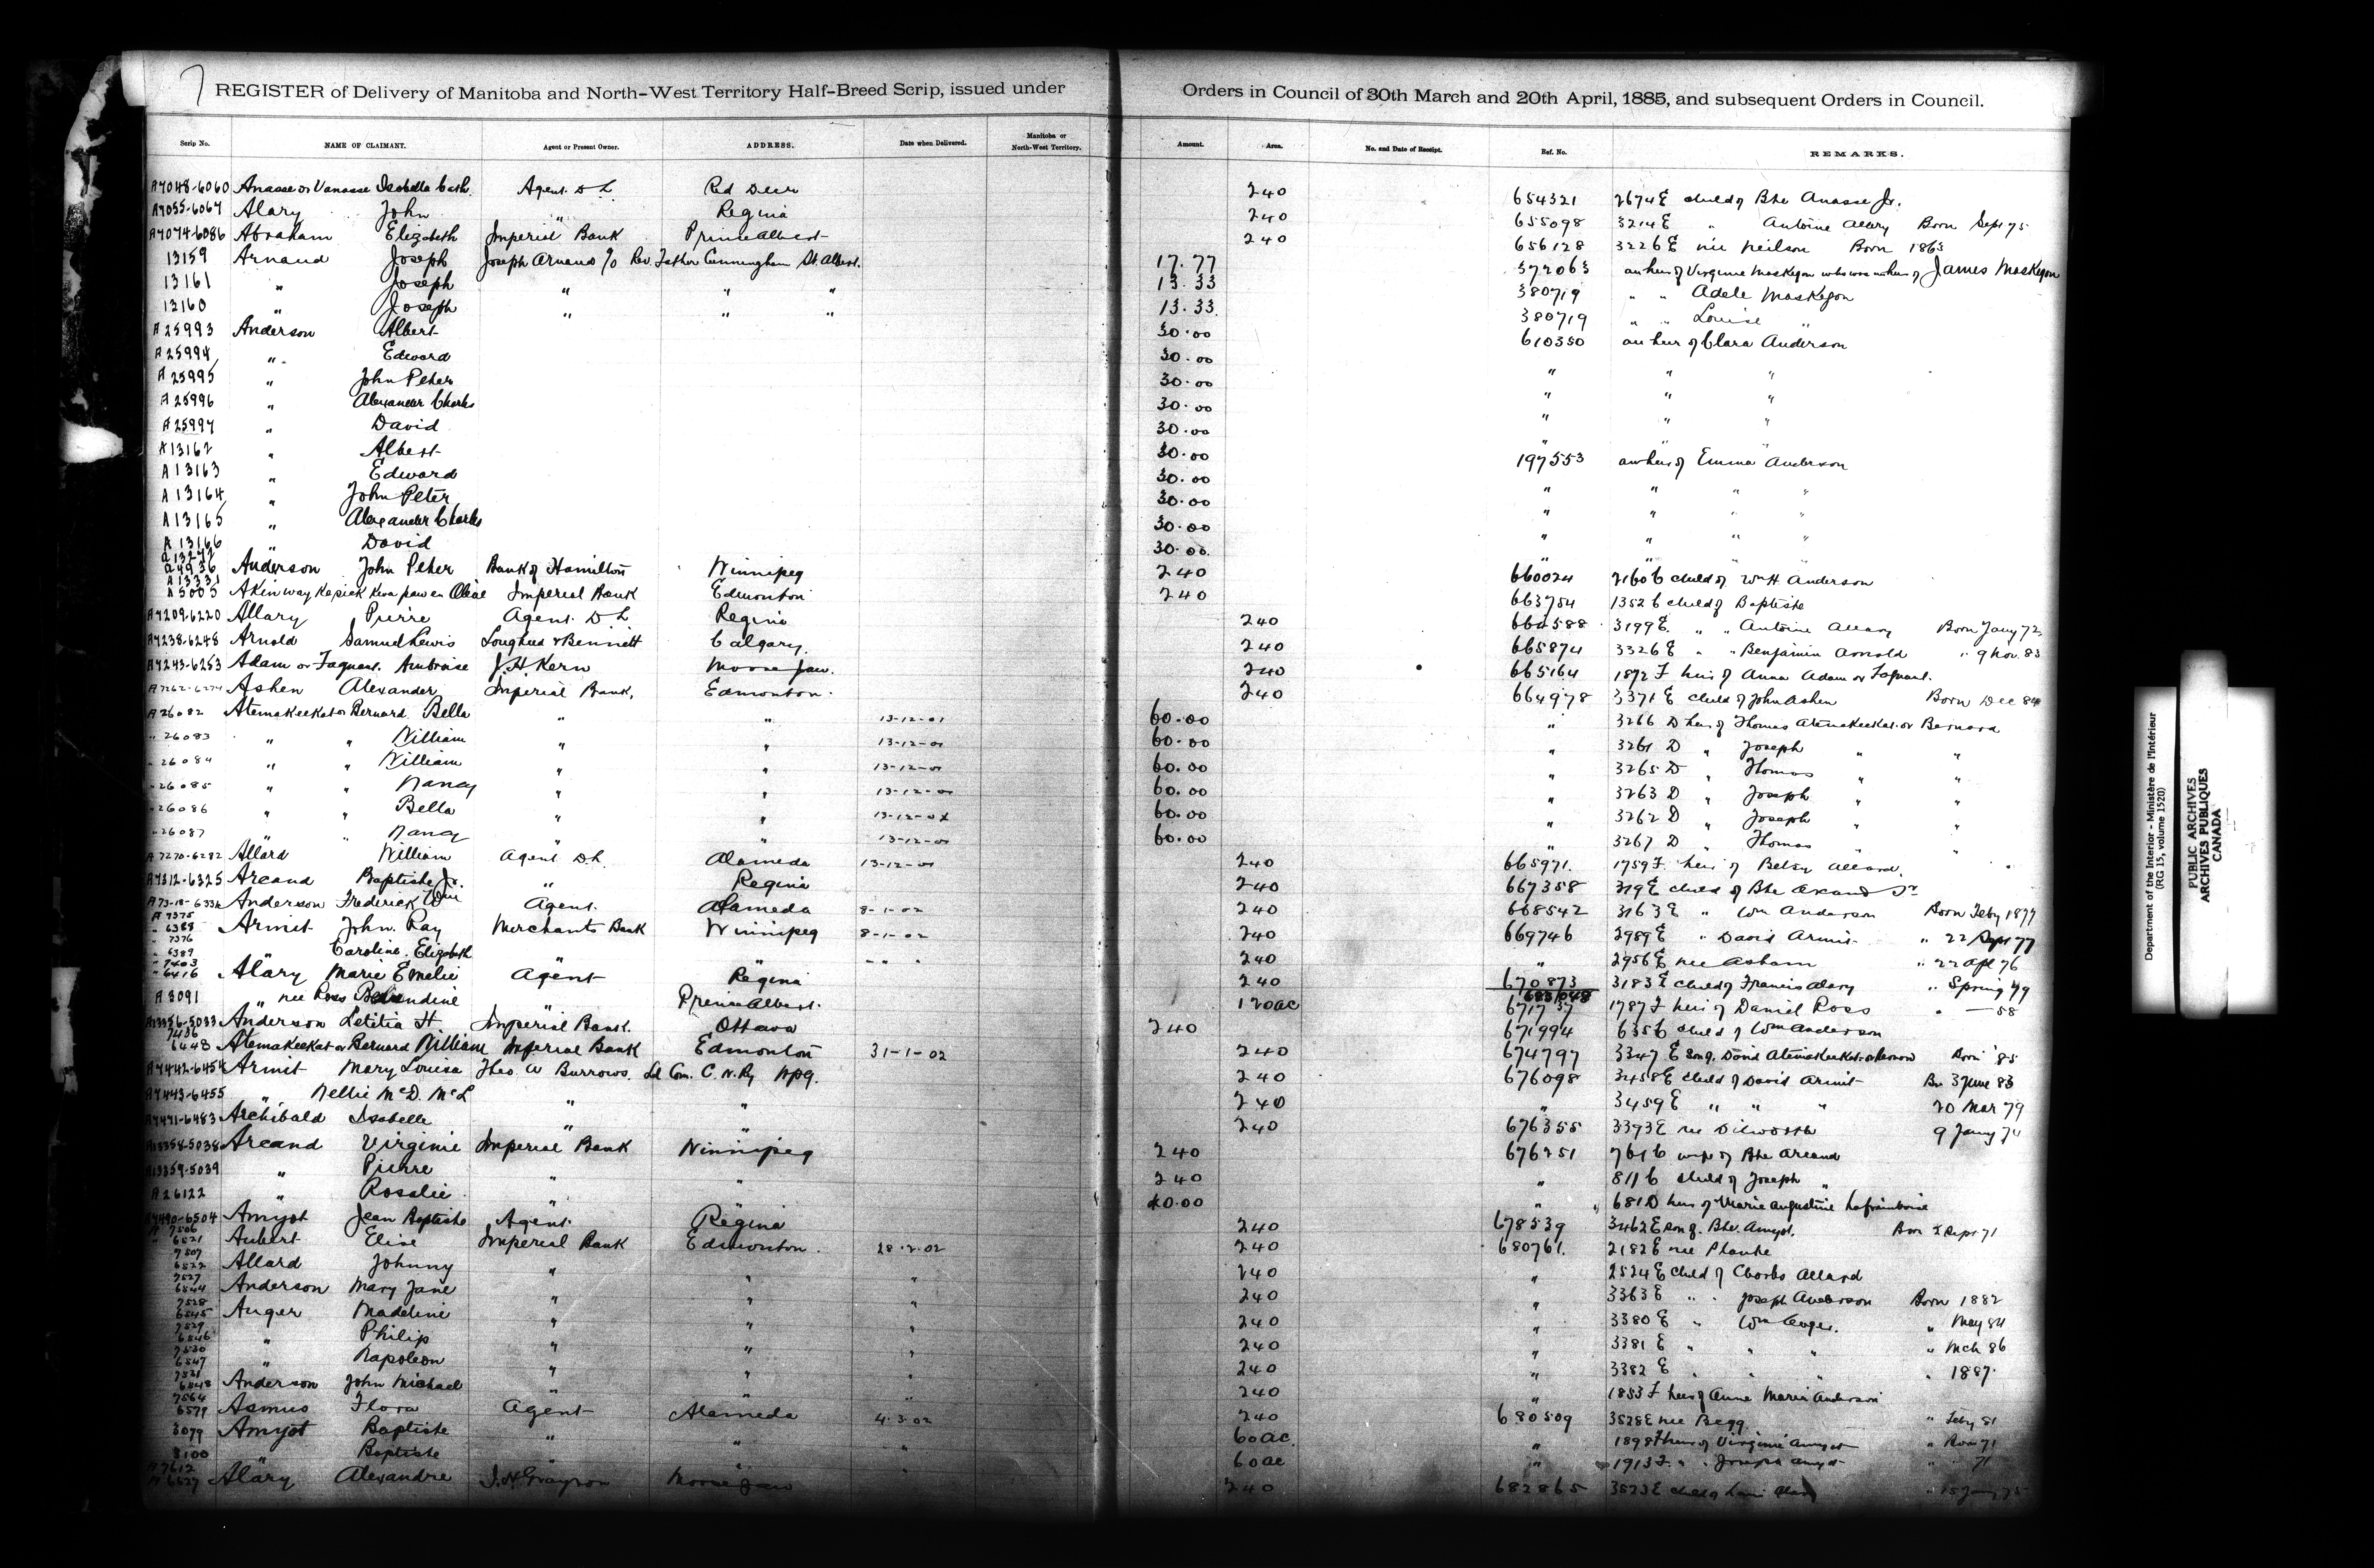 7
REGISTER of Delivery of Manitoba and North-West Territory Half-Breed Scrip, issued under Orders in Council of 30th March and 20th April, 1885, and subsequent Orders in Council.
Scrip No. NAME OF CLAIMANT. Agent or Present Owner. ADDRESS. Date when Delivered. Manitoba or North-West Territory. Amount. Area. No. and Date of Receipt. Ref. No. REMARKS.
A7048-6060 Anasse or Vanasse Isabella Cath. Agent D L Red Deer 240 654321 2674 E child of Bte Anasse Jr.
A7055-6067 Alary John " Regina 240 655098 3214 E " Antoine Allary Born Sept 75
A7074-6086 Abraham Elizabeth Imperial Bank Prince Albert 240 656128 3226 E nee Neilson Born 1863
13159 Arnaud Joseph Joseph Arnaud c/o Rev. Father Cunningham St. Albert. 17.77 372063 an heir of Virginie Maskegon who was an heir of James Maskegon
13161 " Joseph " " " 13.33 380719 " " Adele Maskegon
13160 " Joseph " " " 13.33 380719 " " Louise "
A25993 Anderson Albert 30.00 610350 an heir of Clara Anderson
A25994 " Edward 30.00 " " "
A25995 " John Peter 30.00 " " "
A25996 " Alexander Charles 30.00 " " "
A25997 " David 30.00 " " "
A13162 " Albert 30.00 197553 an heir of Emma Anderson
A13163 " Edward 30.00 " " " "
A13164 " John Peter 30.00 " " " "
A13165 " Alexander Charles 30.00 " " " "
A13166 " David 30.00 " " " "
A13272 4936 Anderson John Peter Bank of Hamilton Winnipeg 240 660024 2160 C child of Wm H Anderson
A13331 A5005 Akinwaykepickkwapawen Olive Imperial Bank Edmonton 240 663754 1352 C child of Baptiste
A7209-6220 Allary Pierre Agent D L Regina 240 664588 3199 E " " Antoine Allary Born Jany 72
A7238-6248 Arnold Samuel Lewis Lougheed & Bennett Calgary. 240 665874 3326 E " " Benjamin Arnold " 9 Nov. 83
A7243-6253 Adam or Faquant Ambroise J. H Kern Moose Jaw. 240 665164 1872 F heir of Anna Adam or Faquant.
A7262-6274 Ashen Alexander Imperial Bank, Edmonton. 240 664978 3371 E child of John Ashen Born Dec 84
A26082 Atemakeekat or Bernard Bella " " 13-12-01 60.00 " 3266 D heir of Thomas Atemakeekat or Bernard
" 26083 " " William " " 13-12-01 60.00 " 3261 D " Joseph " "
" 26084 " " William " " 13-12-01 60.00 " 3265 D " Thomas " "
" 26085 " " Nancy " " 13-12-01 60.00 " 3263 D " Joseph " "
" 26086 " " Bella " " 13-12-01 60.00 " 3262 D " Joseph " "
" 26087 " Nancy " " 13-12-01 60.00 " 3267 D " Thomas " "
A7270-6282 Allard William Agent D L. Alameda 13-12-01 240 665971. 1759 F. heir of Betsy Allard.
A7312-6325 Arcand Baptiste Jr. " Regina 240 667358 319 E child of Bte Arcand Sr
Anderson Frederick Wm Agent. Alameda 8-1-02 240 668542 3163 E " Wm Anderson Born Feby 1877
A 7375 6388 Armit John Ray Merchants Bank Winnipeg 8-1-02 240 669746 2989 E " David Armit " 22 Sept 77
" 7376 " 6389 Caroline Elizabeth " " " " 240 " 2956 E nee Asham " 22 Apl 76
" 7403 " 6416 Alary Marie Emelie Agent Regina 240 670873 3183 E child of Francis Alary " Spring 79
A3091 " nee Ross Blandine " Prince Albert. 120 ac 683048 671737 1787 F heir of Daniel Ross " — 58
A13356-5033 Anderson Letitia H Imperial Bank. Ottawa 240 671994 635 C child of Wm Anderson
7436 6448 Atemakeekat or Bernard William Imperial Bank Edmonton 31-1-02 240 674797 3347 E son of David Atemakeekat or Bernard Born '85
A7442-6454 Armit Mary Louisa Theo. A Burrows. Ld Com. C. N. Ry Wpg. 240 676098 3458 E child of David Armit Bn 3 June 83
A7443-6455 " Nellie McD. McL " " 240 " 3459 E " " " 20 Mar 79
A7471-6483 Archibald Isabelle " " 240 676355 3393 E nee Dilworth 9 Jany 74
A13358-5038 Arcand Virginie Imperial Bank Winnipeg 240 676251 761 C wife of Bte Arcand
A13359-5039 " Pierre " " 240 " 811 C child of Joseph "
A26122 " Rosalie " " 40.00 " 681 D heir of Marie Augustine Laframboise
A7490-6504 Amyot Jean Baptiste Agent. Regina 240 678539 3462 E son of Bte. Amyot. Born Sept 71
7506 6521 Aubert Elise Imperial Bank Edmonton 28-2-02 240 680761. 2182 E nee Plante
7507 6522 Allard Johnny " 240 " 2524 E child of Charles Allard
7527 6544 Anderson Mary Jane " " " 240 " 3363 E " " Joseph Anderson Born 1882
7528 6545 Auger Madeline " " " 240 " 3380 E " Wm Auger. " May 84
7529 6546 " Philip " " " 240 " 3381 E " " " " Mch 86
7530 6547 " Napoleon " " " 240 " 3382 E " " " " 1887.
7531 6548 Anderson John Michael " " " 240 " 1853 F heir of Anne Maria Anderson
7564 6579 Asmus Flora Agent Alameda 4-3-02 240 680509 3528 E nee Begg. " Feby 81
3079 Amyot Baptiste " " " 60 ac. " 1898 F heir of Virginie Amyot " Born 71
3100 Baptiste " " 60 ac " 1913 F. " " Joseph Amyot " 71
A7612 6627 Alary Alexandre Moose Jaw 240 682865 3523 E child of Louis Alary " 15 Jany 75
Department of the Interior - Ministère de l'Intérieur
(RG 15, volume 1520)
PUBLIC ARCHIVES
ARCHIVES PUBLIQUES
CANADA